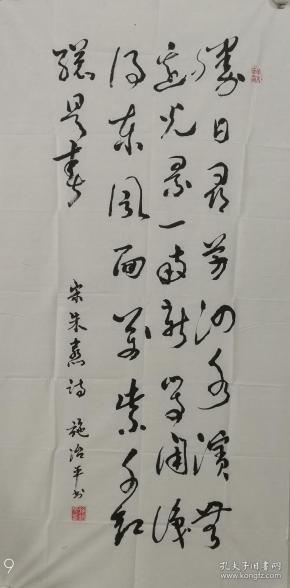 勝日尋芳泗水濱無
邊光景一時新等閒識
得東風面萬紫千紅
總是春
宋朱熹詩 施治平书
9
孔夫子旧书网